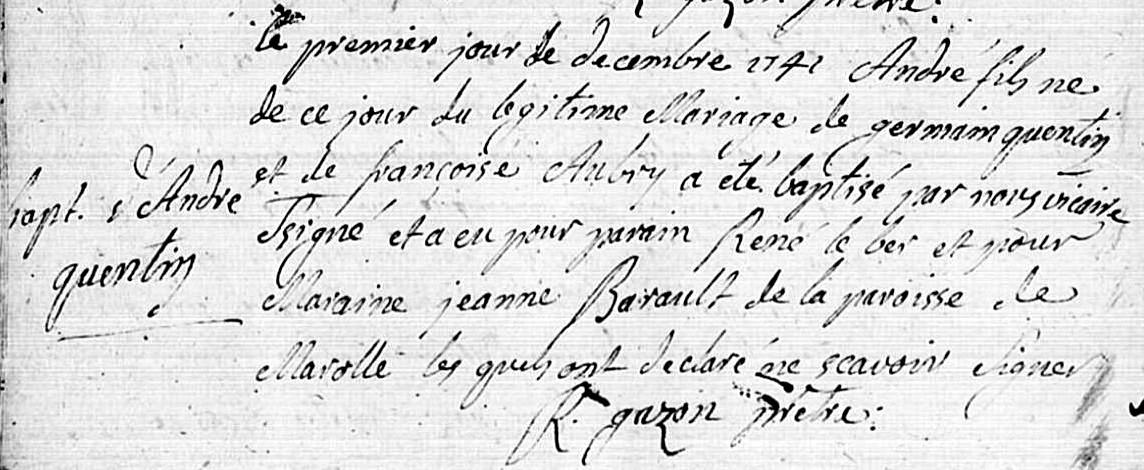 R gazon prêtre:
le premier jour de decembre 1741 André fils né
de ce jour du legitime Mariage de germain quentin
et de françoise Aubry a été baptisé par nous vicaire
bapt. d'André
quentin
Ssigné et a eu pour parain René le ber et pour
Maraine jeanne Barault de la paroisse de
Marolle les quels ont declaré ne scavoir signer
R. gazon prêtre: